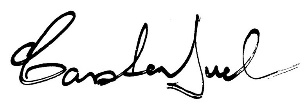 Carsten Juel